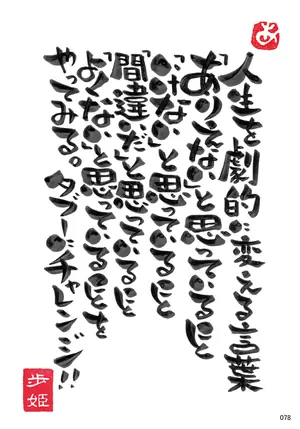 あ
人生を劇的に変える言葉
「ありえない」と思っていること
「いけない」と思っていること
「間違いだ」と思っていること
「よくない」と思っていることを
やってみる。タブーにチャレンジ!!
歩姫
078